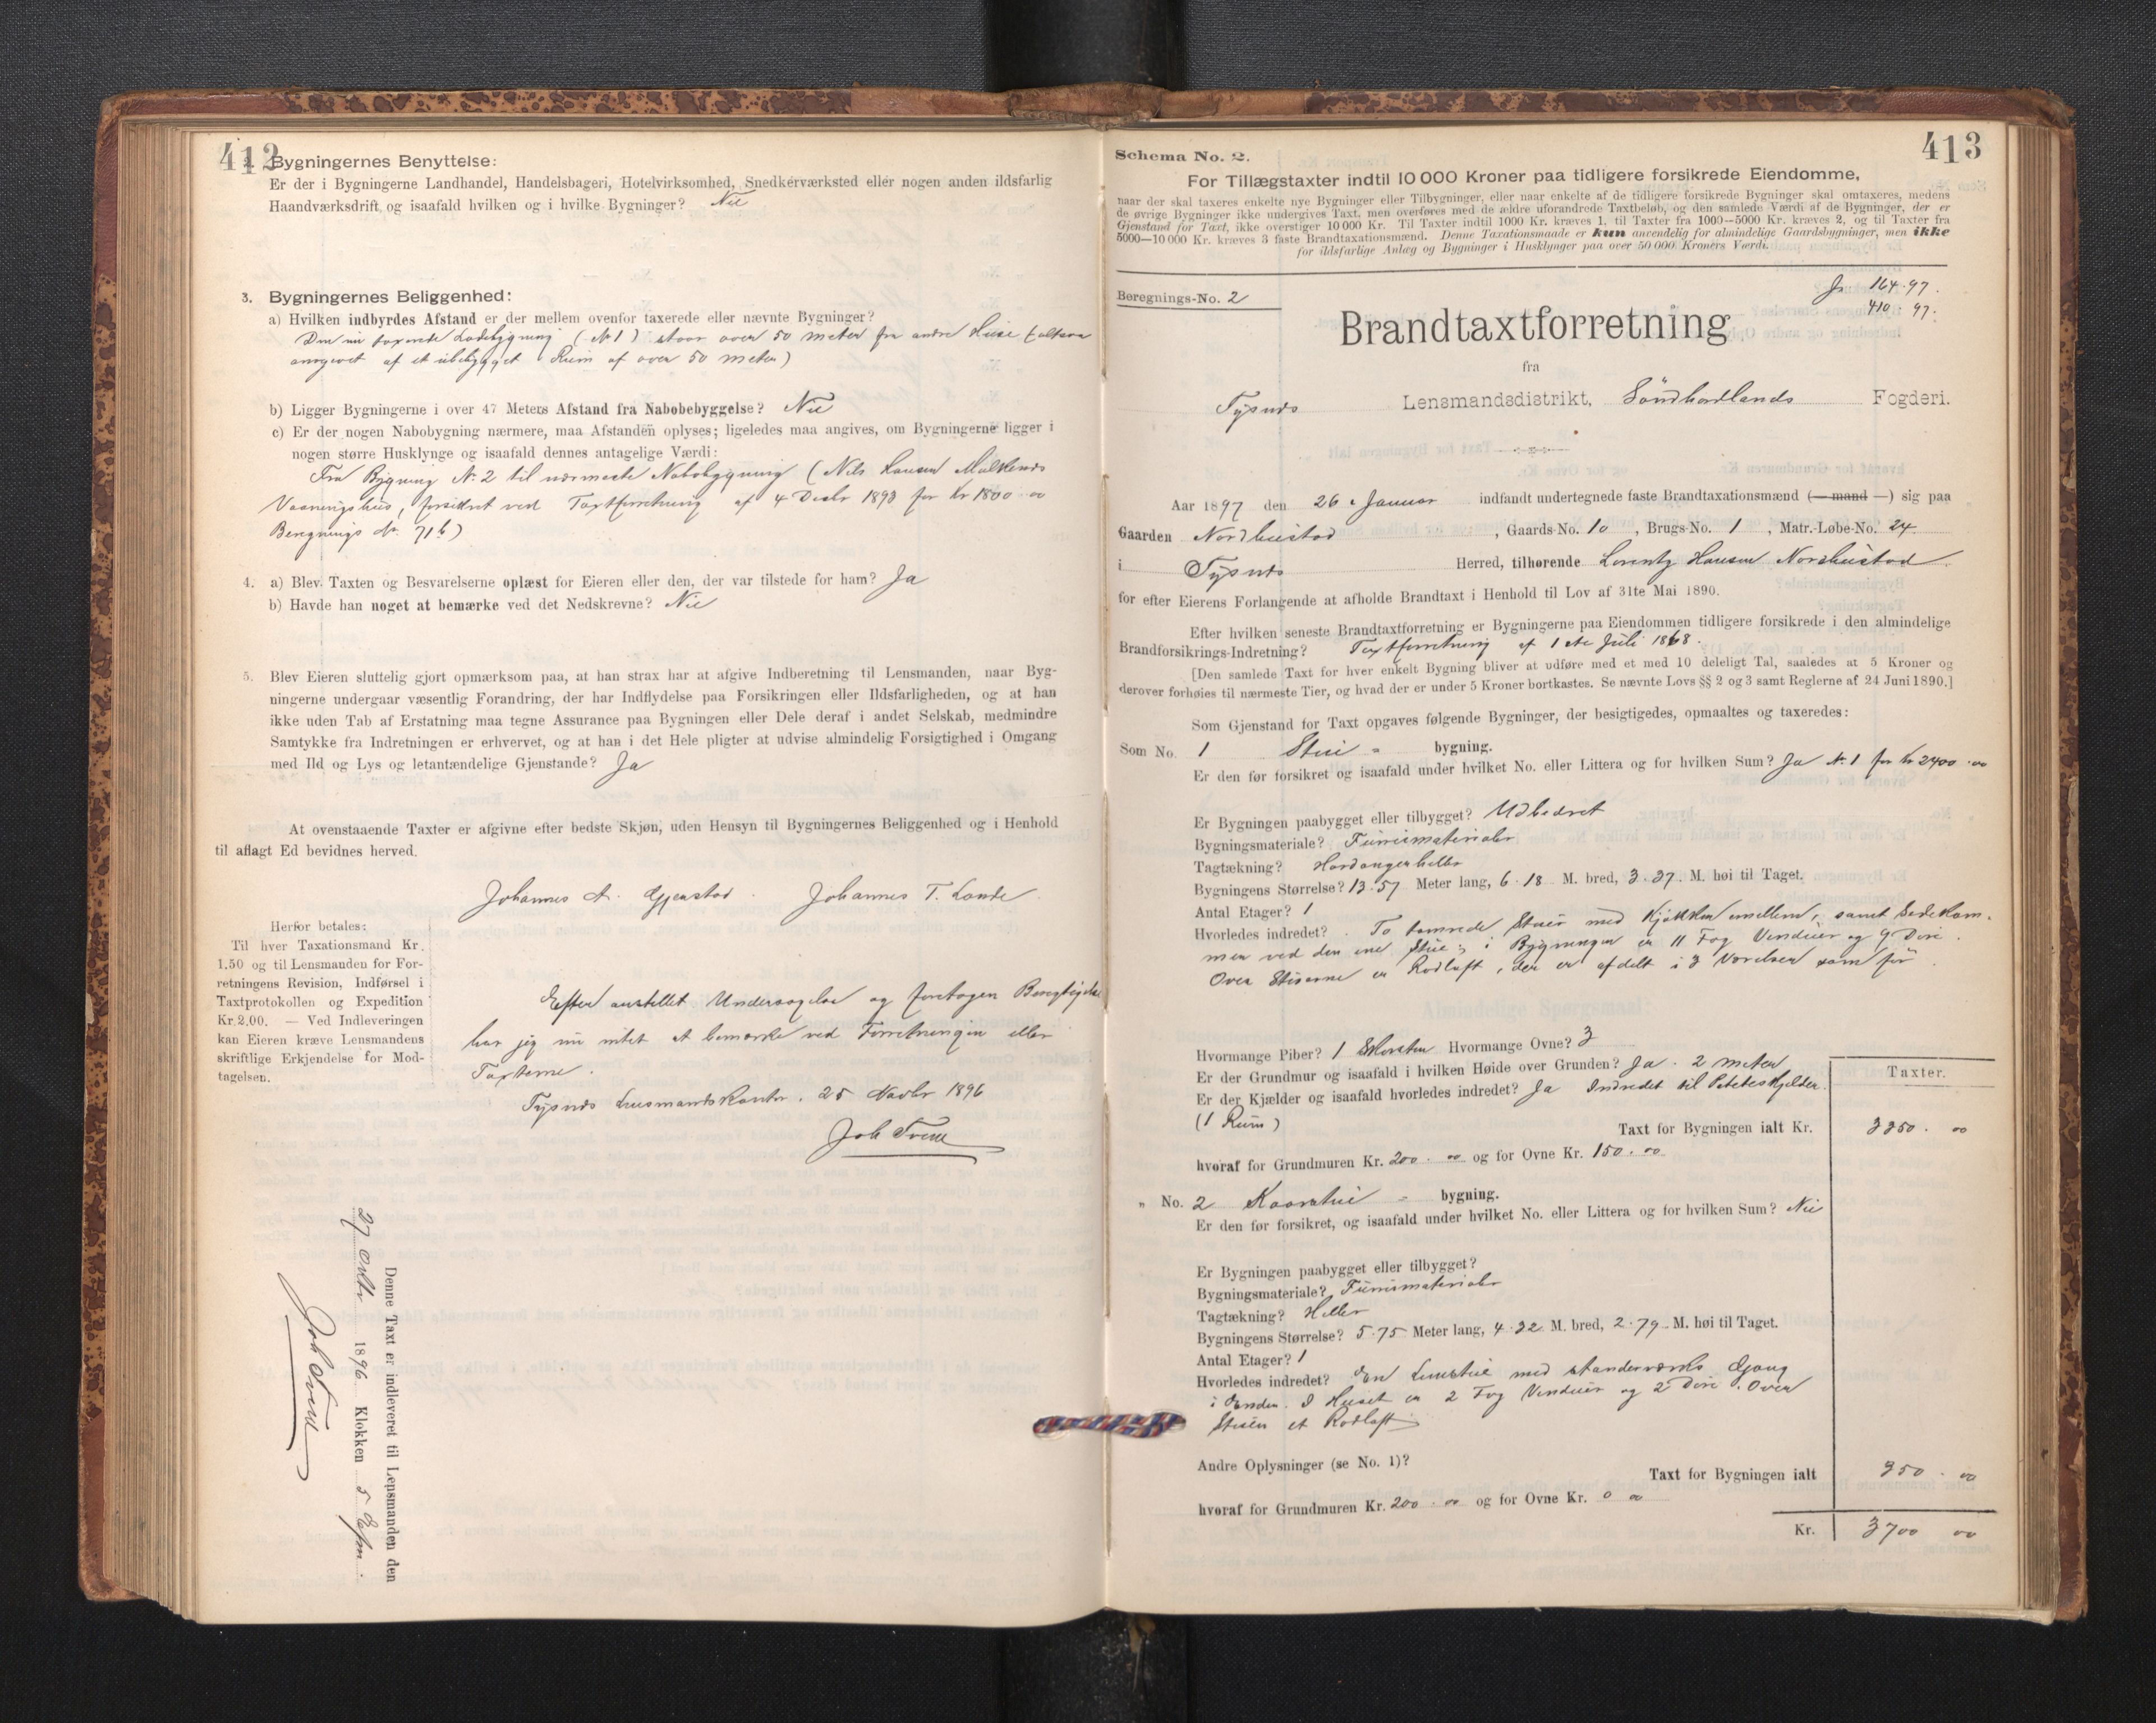 412
2. Bygningernes Benyttelse:
Er der i Bygningerne Landhandel, Handelsbageri, Hotelvirksomhed, Snedkerværksted eller nogen anden ildsfarlig
Haandværksdrift og isaafald hvilken og i hvilke Bygninger? Nei
3. Bygningernes Beliggenhed:
a) Hvilken indbyrdes Afstand er der mellem ovenfor taxerede eller nævnte Bygninger?
Den nu taxerede Ladebygning (No 1) staar over 50 meter fra andre Huse (altsaa
omgivet af et ubebygget Rum af over 50 meter)
b) Ligger Bygningerne i over 47 Meters Afstand fra Nabobebyggelse? Nei
c) Er der nogen Nabobygning nærmere, maa Afstanden oplyses; ligeledes maa angives, om Bygningerne ligger i
nogen større Husklynge og isaafald dennes antagelige Værdi:
Fra Bygning No. 2 til nærmeste Nabobygning (Nils Hansen
Vaaningshus, forsikret ved Taxtforretning af 4 Decbr 1893 for Kr 1800.00
Beregnings No. 71b)
4. a) Blev Taxten og Besvarelserne oplæst for Eieren eller den, der var tilstede for ham? Ja
b) Havde han noget at bemærke ved det Nedskrevne? Nei
5. Blev Eieren sluttelig gjort opmærksom paa, at han strax har at afgive Indberetning til Lensmanden, naar Byg-
ningerne undergaar væsentlig Forandring, der har Indflydelse paa Forsikringen eller Ildsfarligheden, og at han
ikke uden Tab af Erstatning maa tegne Assurance paa Bygningen eller Dele deraf i andet Selskab, medmindre
Samtykke fra Indretningen er erhvervet, og at han i det Hele pligter at udvise almindelig Forsigtighed i Omgang
med Ild og Lys og letantændelige Gjenstande? Ja
At ovenstaaende Taxter er afgivne efter bedste Skjøn, uden Hensyn til Bygningernes Beliggenhed og i Henhold
til aflagt Ed bevidnes herved.
Johannes A. Gjerstad. Johannes T. Lande.
Herfor betales:
Til hver Taxationsmand Kr.
1.50 og til Lensmanden for For-
retningens Revision, Indførsel i
Taxtprotokollen og Expedition
Kr. 2.00. — Ved Indleveringen
kan Eieren kræve Lensmandens
skriftlige Erkjendelse for Mod-
tagelsen.
Efter anstillet Undersøgelse og foretagen Besigtigelse
har jeg nu intet at bemærke ved Forretningen eller
Taxterne.
Tysnes Lensmandskontor. 25 Novbr 1896
Joh Tveit
Denne Taxt er indleveret til Lensmanden den
27 Oktbr 1896 Klokken 5 Efm.
Joh Tveit
413
Schema No. 2.
For Tillægstaxter indtil 10 000 Kroner paa tidligere forsikrede Eiendomme,
naar der skal taxeres enkelte nye Bygninger eller Tilbygninger, eller naar enkelte af de tidligere forsikrede Bygninger skal omtaxeres, medens
de øvrige Bygninger ikke undergives Taxt, men overføres med de ældre uforandrede Taxtbeløb, og den samlede Værdi af de Bygninger, der er
Gjenstand for Taxt, ikke overstiger 10 000 Kr. Til Taxter indtil 1000 Kr. kræves 1, til Taxter fra 1000—5000 Kr. kræves 2, og til Taxter fra
5000—10 000 Kr. kræves 3 faste Brandtaxationsmænd. Denne Taxationsmaade er kun anvendelig for almindelige Gaardsbygninger, men ikke
for ildsfarlige Anlæg og Bygninger i Husklynger paa over 50 000 Kroners Værdi.
Beregnings-No. 2
Jr. 164.97.
410.97.
Brandtaxtforretning
fra
Tysnes Lensmandsdistrikt, Söndhordlands Fogderi.
Aar 1897 den 26 Januar indfandt undertegnede faste Brandtaxationsmænd (— mand —) sig paa
Gaarden Nordhustad, Gaards-No. 10, Brugs-No. 1, Matr.-Løbe-No. 24
i Tysnes Herred, tilhørende Lorentz Hansen Nordhustad
for efter Eierens Forlangende at afholde Brandtaxt i Henhold til Lov af 31te Mai 1890.
Efter hvilken seneste Brandtaxtforretning er Bygningerne paa Eiendommen tidligere forsikrede i den almindelige
Brandforsikrings-Indretning? Taxtforretning af 1ste Juli 1868.
[Den samlede Taxt for hver enkelt Bygning bliver at udføre med et med 10 deleligt Tal, saaledes at 5 Kroner og
derover forhøies til nærmeste Tier, og hvad der er under 5 Kroner bortkastes. Se nævnte Lovs §§ 2 og 3 samt Reglerne af 24 Juni 1890.]
Som Gjenstand for Taxt opgaves følgende Bygninger, der besigtigedes, opmaaltes og taxeredes:
Som No. 1 Stue - bygning.
Er den før forsikret og isaafald under hvilket No. eller Littera og for hvilken Sum? Ja No. 1 for Kr 2400.00
Er Bygningen paabygget eller tilbygget? Udbedret
Bygningsmateriale? Furumaterialer
Tagtækning? Hardangerheller
Bygningens Størrelse? 13.57 Meter lang, 6.18 M. bred, 3.37 M. høi til Taget.
Antal Etager? 1
Hvorledes indredet? To tømrede Stuer med Kjøkken imellem, samt Sidekam-
mer ved den ene Stue; i Bygningen er 11 Fag Vinduer og 9 Döre.
Over Stuerne er Rodloft, der er afdelt i 3 Værelser som før
Hvormange Piber? 1 Skorsten Hvormange Ovne? 3
Er der Grundmur og isaafald i hvilken Høide over Grunden? Ja. 2 meter
Er der Kjælder og isaafald hvorledes indredet? Ja Indredet til Poteteskjelder.
(1 Rum)
Taxter.
Taxt for Bygningen ialt Kr. 3350.00
hvoraf for Grundmuren Kr. 200.00 og for Ovne Kr. 150.00
„ No. 2 Kaarstue - bygning.
Er den før forsikret, og isaafald under hvilket No. eller Littera og for hvilken Sum? Nei
Er Bygningen paabygget eller tilbygget?
Bygningsmateriale? Furumaterialer
Tagtækning? Heller
Bygningens Størrelse? 5.75 Meter lang, 4.32 M. bred, 2.79 M. høi til Taget.
Antal Etager? 1
Hvorledes indredet? En med standerværks Gang
i Enden. I Huset er 2 Fag Vinduer og 2 Döre. Over
Stuen et Rodloft
Andre Oplysninger (se No. 1)?
Taxt for Bygningen ialt 350.00
hvoraf for Grundmuren Kr. 200.00 og for Ovne Kr. 0 00
Kr. 3700 00